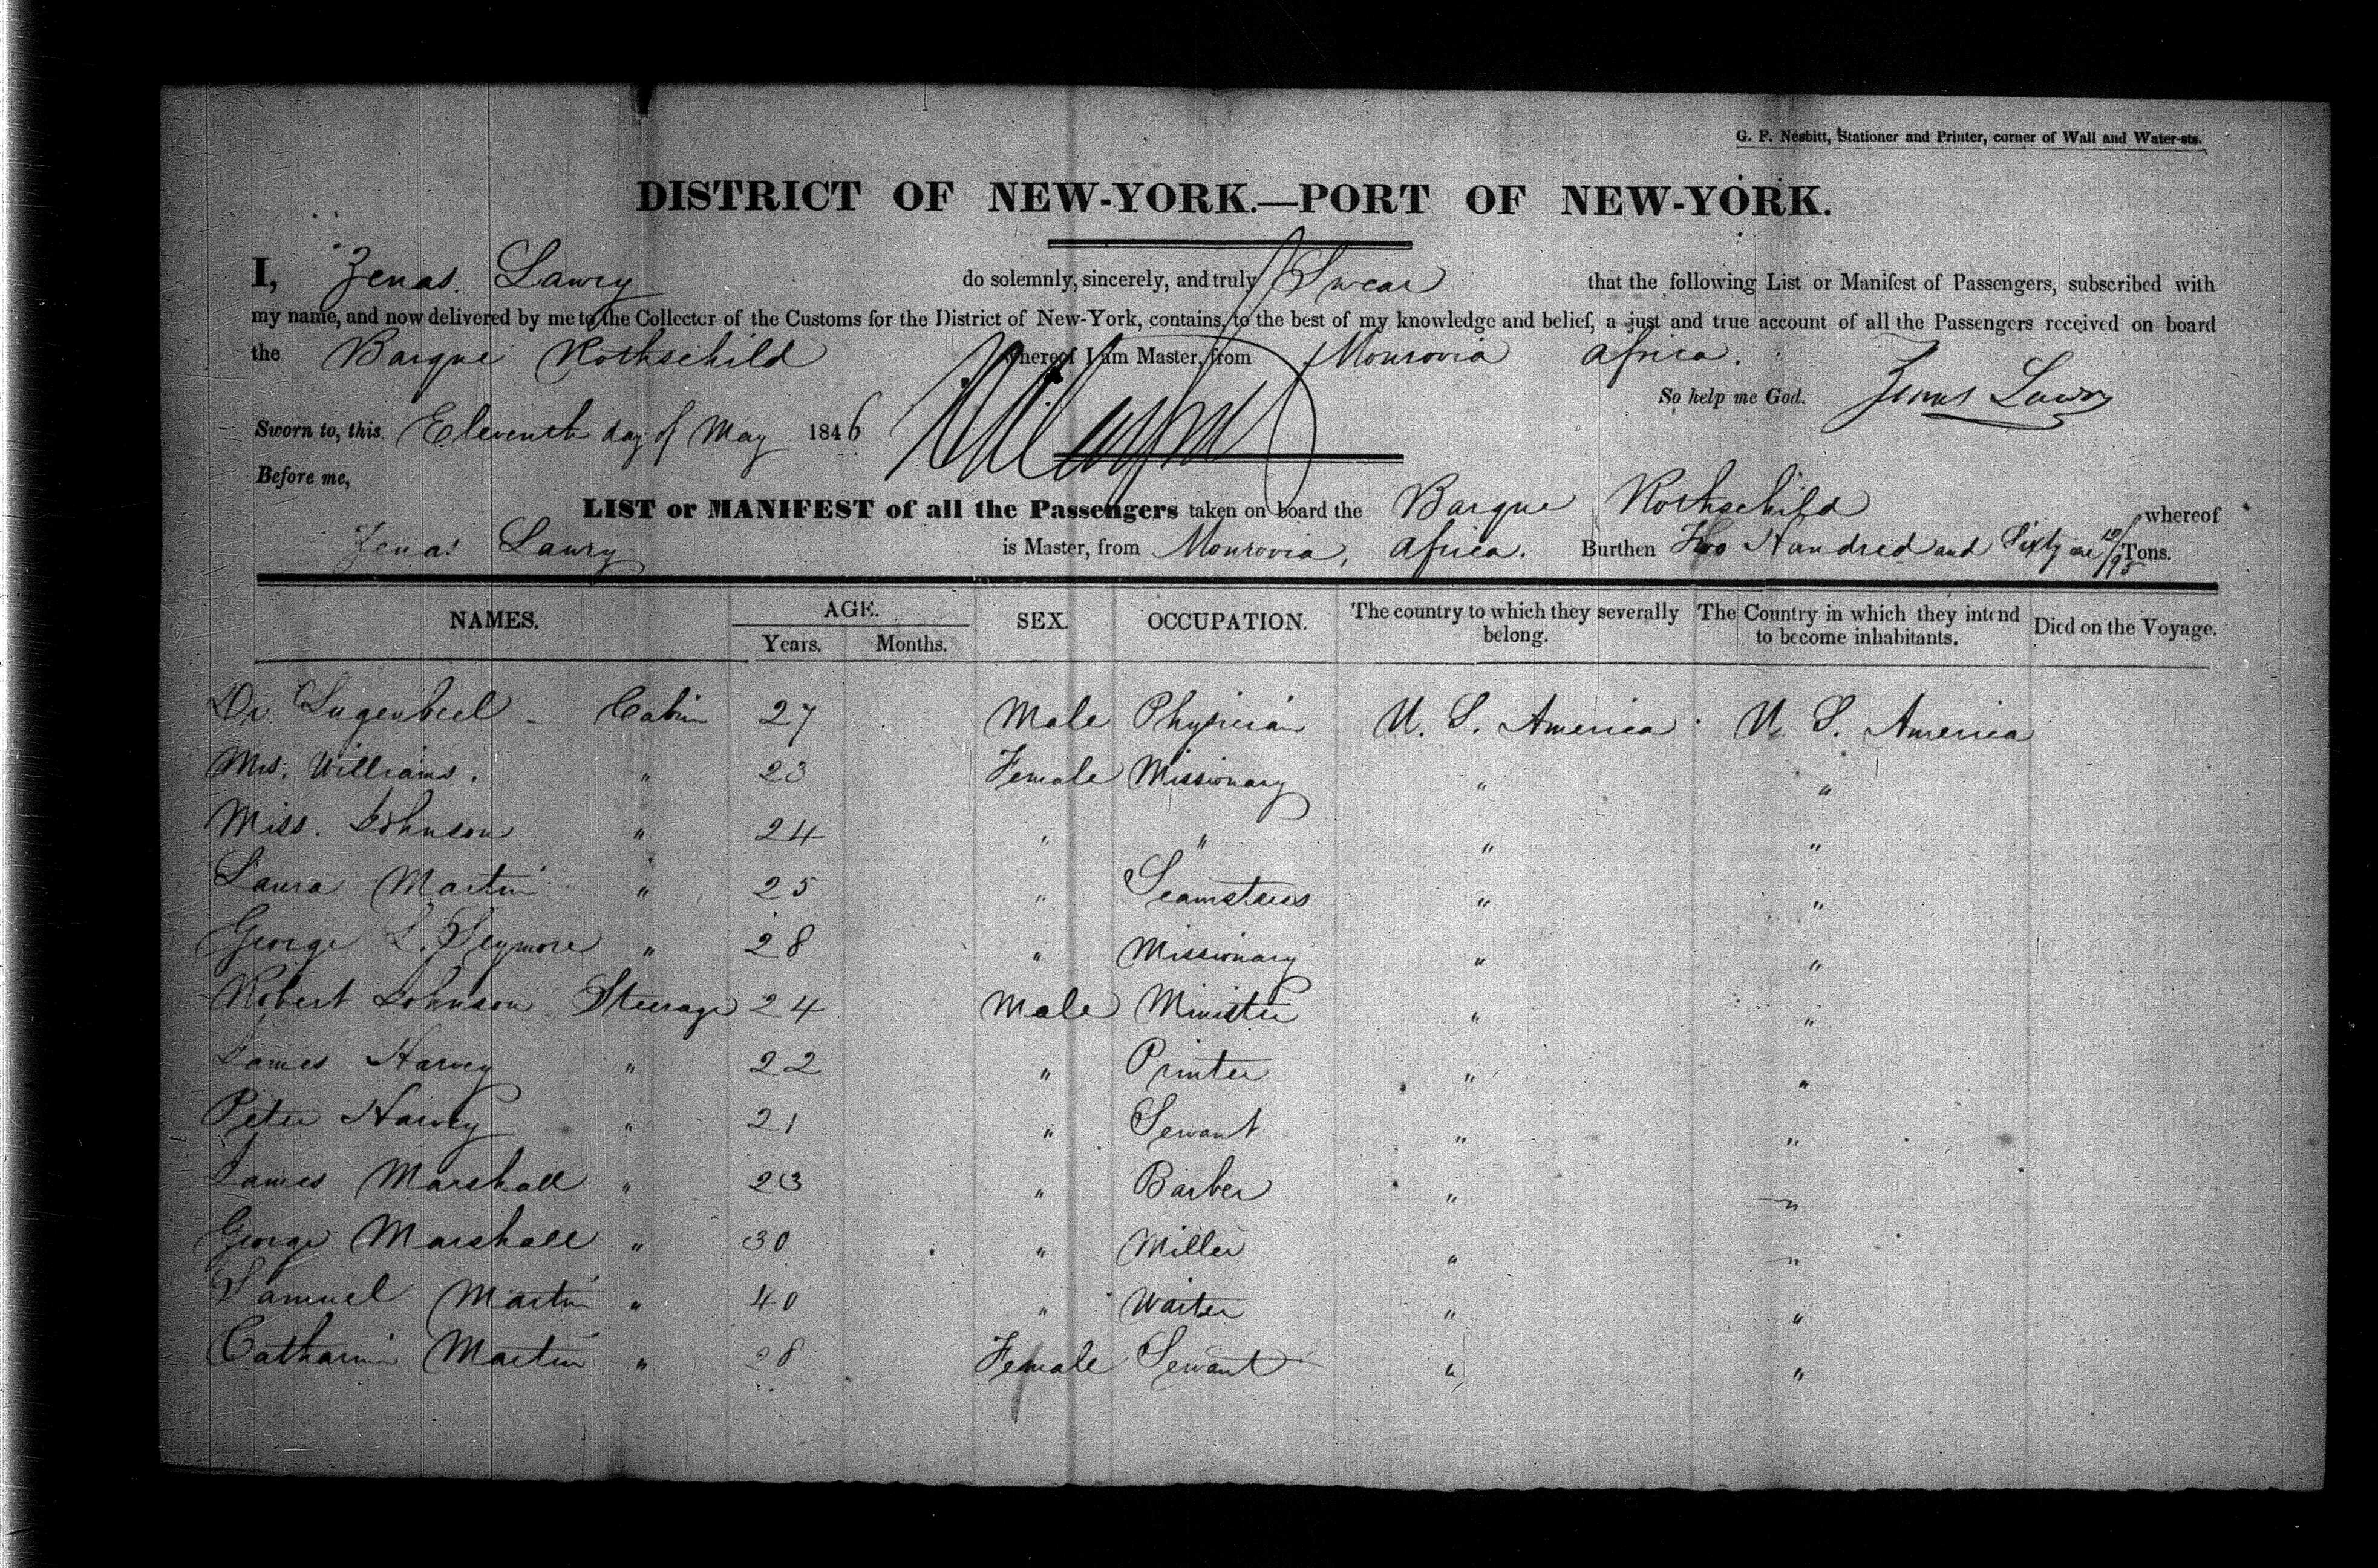 G. F. Nesbitt, Stationer and Printer, corner of Wall and Water-sts.
DISTRICT OF NEW-YORK.—PORT OF NEW-YORK.
I, Zenas Lawry do solemnly, sincerely, and truly Swear that the following List or Manifest of Passengers, subscribed with
my name, and now delivered by me to the Collector of the Customs for the District of New-York, contains, to the best of my knowledge and belief, a just and true account of all the Passengers received on board
the Barque Rothschild whereof I am Master, from Monrovia Africa.
So help me God. Zenas Lawry
Sworn to, this Eleventh day of May 1846
Before me,
LIST or MANIFEST of all the Passengers taken on board the Barque Rothschild whereof
Zenas Lawry is Master, from Monrovia, Africa. Burthen Two Hundred and Sixty one 10/95 Tons.
NAMES. AGE. SEX. OCCUPATION. The country to which they severally belong. The Country in which they intend to become inhabitants. Died on the Voyage.
Years. Months.
Dr Lugenbeel - Cabin 27 Male Physician U. S. America U. S. America
Mrs. Williams. " 23 Female Missionary " "
Miss. Johnson " 24 " " " "
Laura Martin " 25 " Seamstress " "
George L. Seymore " 28 " Missionary " "
Robert Johnson Steerage 24 Male Minister " "
James Harvey " 22 " Printer " "
Peter Harvey " 21 " Servant " "
James Marshall " 23 " Barber " "
George Marshall " 30 " Miller " "
Samuel Martin " 40 " Waiter " "
Catharin Martin " 28 Female Servant " "